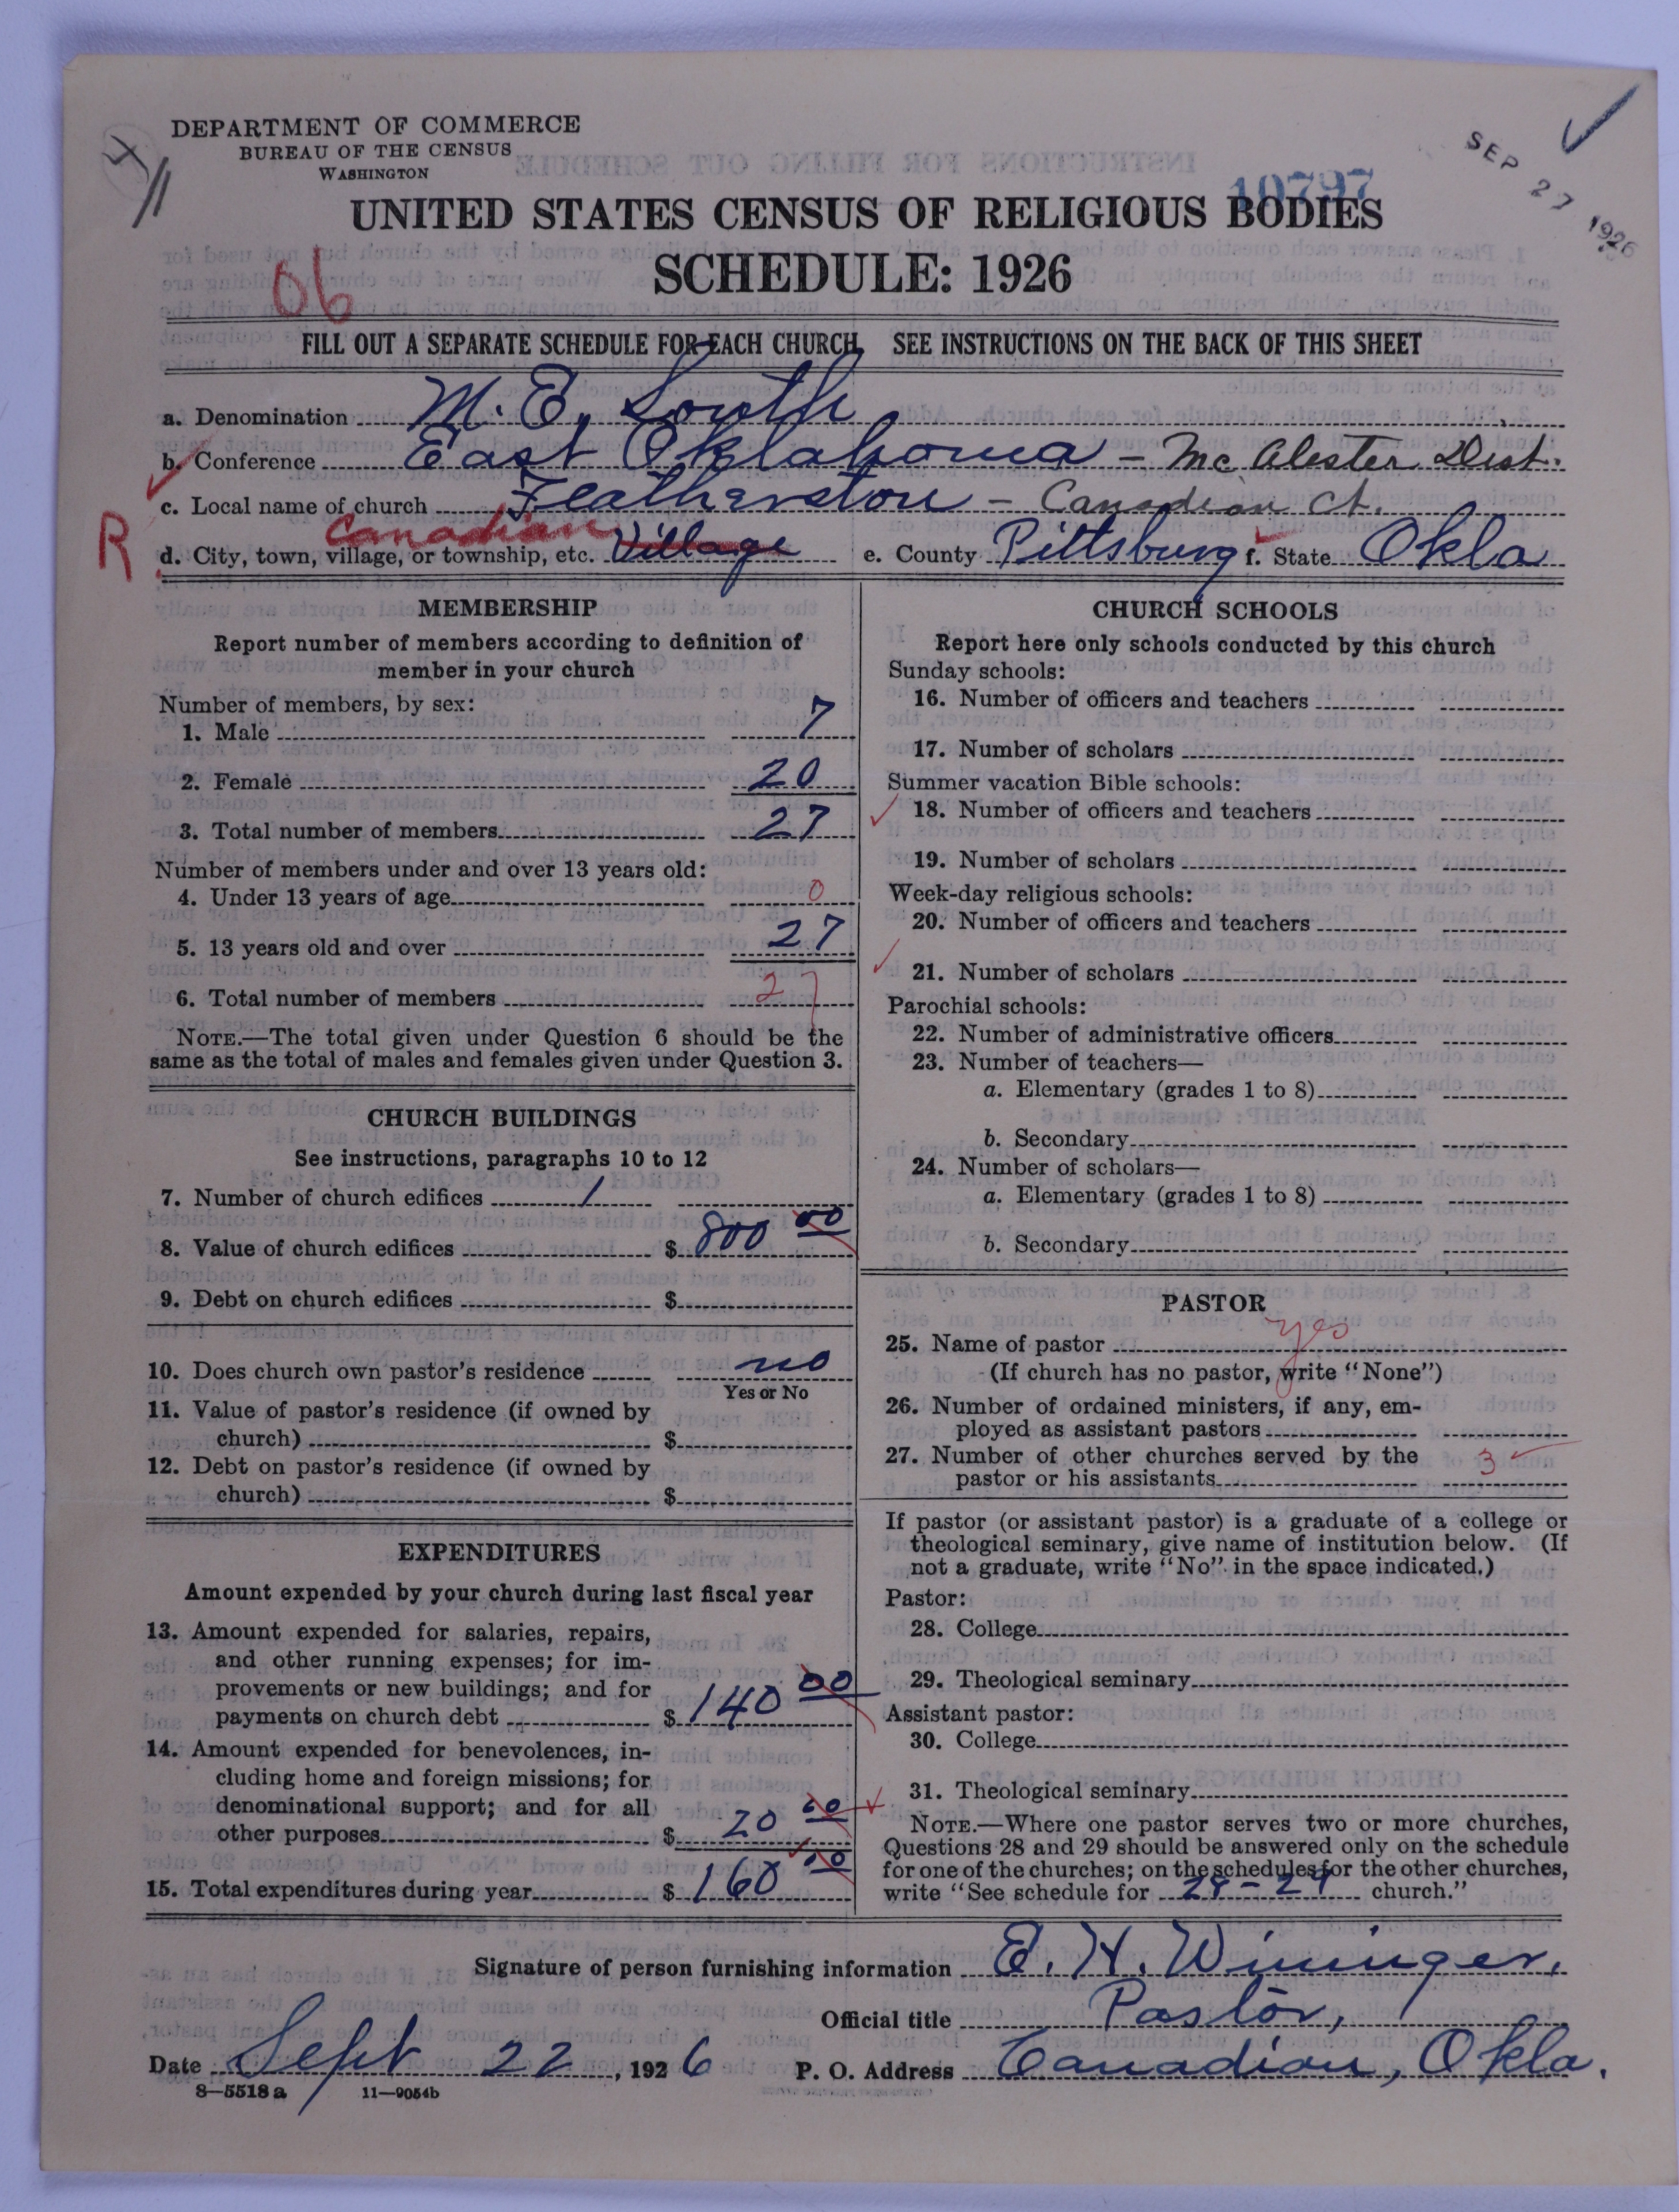 DEPARTMENT OF COMMERCE
BUREAU OF THE CENSUS
WASHINGTON
10797
SEP 27 1926
UNITED STATES CENSUS OF RELIGIOUS BODIES
SCHEDULE: 1926
06
FILL OUT A SEPARATE SCHEDULE FOR EACH CHURCH. SEE INSTRUCTIONS ON THE BACK OF THIS SHEET
a. Denomination M. E. South
b. Conference East Oklahoma - McAlester Dist.
c. Local name of church Featherston - Canadian Ct.
Canadian
R d. City, town, village, or township, etc. Village e. County Pittsburg f. State Okla
MEMBERSHIP
Report number of members according to definition of
member in your church
Number of members, by sex:
1. Male 7
2. Female 20
3. Total number of members 27
Number of members under and over 13 years old:
4. Under 13 years of age 0
5. 13 years old and over 27
6. Total number of members 27
NOTE.—The total given under Question 6 should be the
same as the total of males and females given under Question 3.
CHURCH BUILDINGS
See instructions, paragraphs 10 to 12
7. Number of church edifices 1
8. Value of church edifices $ 800 00
9. Debt on church edifices $
10. Does church own pastor's residence no
Yes or No
11. Value of pastor's residence (if owned by
church) $
12. Debt on pastor's residence (if owned by
church) $
EXPENDITURES
Amount expended by your church during last fiscal year
13. Amount expended for salaries, repairs,
and other running expenses; for im-
provements or new buildings; and for
payments on church debt $ 140 00
14. Amount expended for benevolences, in-
cluding home and foreign missions; for
denominational support; and for all
other purposes $ 20 00
15. Total expenditures during year $ 160 00
CHURCH SCHOOLS
Report here only schools conducted by this church
Sunday schools:
16. Number of officers and teachers
17. Number of scholars
Summer vacation Bible schools:
18. Number of officers and teachers
19. Number of scholars
Week-day religious schools:
20. Number of officers and teachers
21. Number of scholars
Parochial schools:
22. Number of administrative officers
23. Number of teachers—
a. Elementary (grades 1 to 8)
b. Secondary
24. Number of scholars—
a. Elementary (grades 1 to 8)
b. Secondary
PASTOR
25. Name of pastor yes
(If church has no pastor, write "None")
26. Number of ordained ministers, if any, em-
ployed as assistant pastors
27. Number of other churches served by the
pastor or his assistants 3
If pastor (or assistant pastor) is a graduate of a college or
theological seminary, give name of institution below. (If
not a graduate, write "No" in the space indicated.)
Pastor:
28. College
29. Theological seminary
Assistant pastor:
30. College
31. Theological seminary
NOTE.—Where one pastor serves two or more churches,
Questions 28 and 29 should be answered only on the schedule
for one of the churches; on the schedules for the other churches,
write "See schedule for 28-29 church."
Signature of person furnishing information E. H. Wininger,
Official title Pastor,
Date Sept 22, 1926 P. O. Address Canadian, Okla.
8—5518a 11—9054b